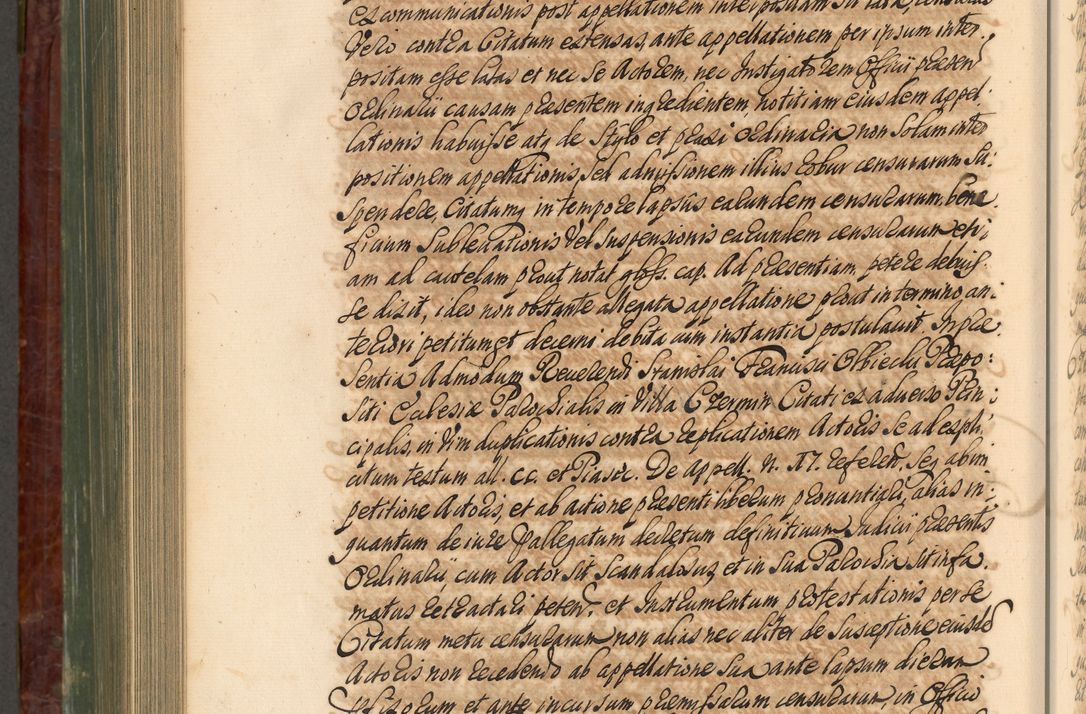 excommunicationis post appellationem interpositam sit lata, censuras
Vero contra Citatum extensas, ante appellationem per ipsum inter
positam esse latas et nec se Actorem, nec Instigatorem Officii praesen
Ordinarii causam praesentem ingredientem, notitiam eiusdem appel-
lationis habuisse atq de Stylo et praxi ordinaria non solam inter
positionem appellationis, sed admissionem illius robur censurarum Su:
spendere, Citatumq in tempore lapsus earundem censurarum bene
ficium Sublevationis Vel Suspensionis earundem censurarum eti,
am ad cautelam prout notat gloss. cap. Ad praesentiam petere debuis-
se dixit, ideo non obstante allegata appellatione prout in termino an:
teriori petitum et decerni debita cum instantia postulavit. In prae
sentia Admodum Reverendi Stanislai Francisci Obiecki Praepo:
siti Ecclesiae Parochialis in Villa Czermin Citati ex adverso Prin:
cipalis, in Vim duplicationis contra replicationem Actoris se ad expli
citum textum all. CC. et Piasec. De Appell. N. 17. referen. Seq ab im
petitione Actoris, et ab actione praesenti liberum pronuntiari, alias in-
quantum de iure pallegatum decretum definitivum Judicii praesentis
Ordinarii cum Actor sit scandalosus et in sua Parochia sit infa.
matus retractari peten. et Instrumentum protestationis per se
Citatum metu censurarum non alias nec aliter de susceptione eiusd
Actoris non recedendo ab appellatione sua ante lapsum dierum
et ante incursum praemissarum censurarum, in Officio